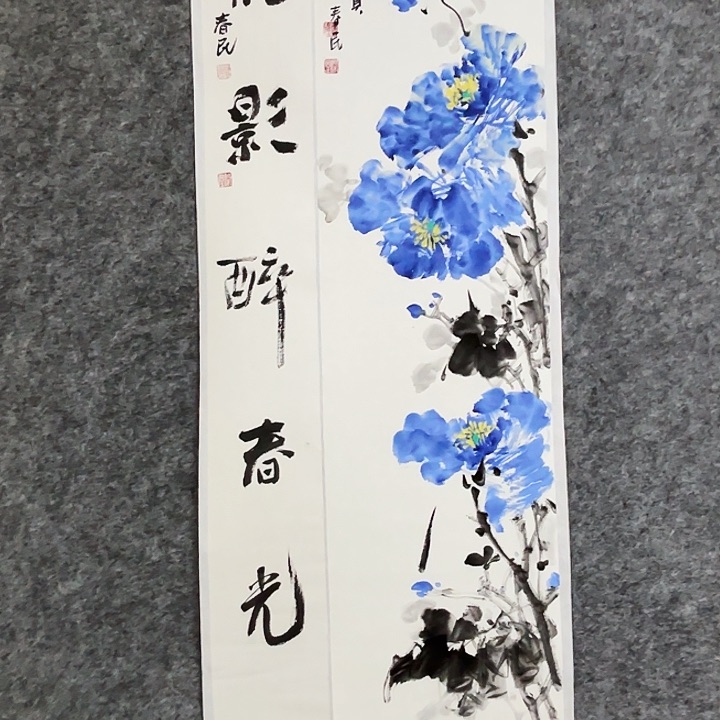 影醉春光
春民
春民